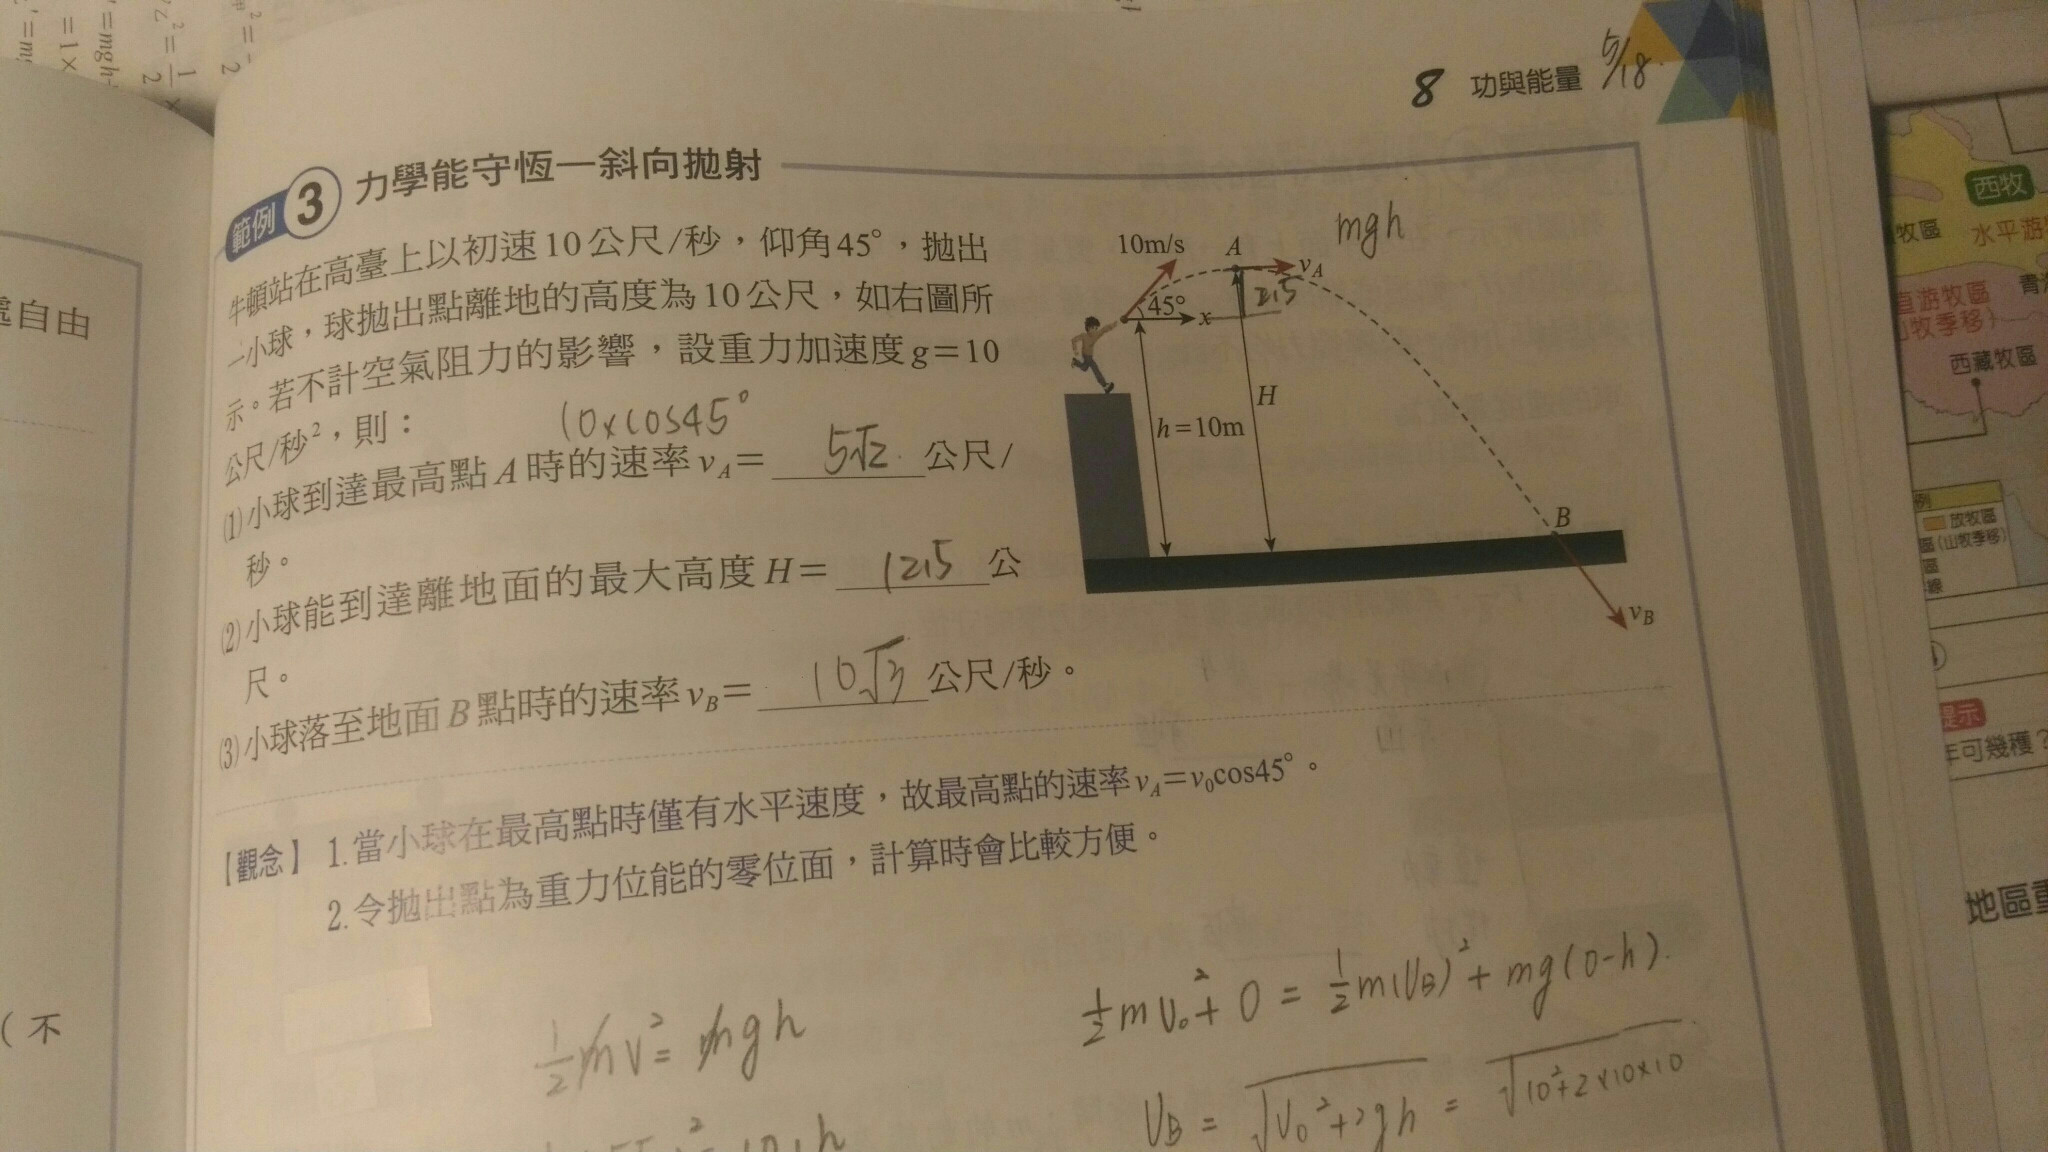 8 功與能量 5/18.
範例 3 力學能守恆—斜向拋射
牛頓站在高臺上以初速10公尺/秒，仰角45°，拋出
一小球，球拋出點離地的高度為10公尺，如右圖所
示。若不計空氣阻力的影響，設重力加速度g=10
公尺/秒²，則：
10×cos45°
(1)小球到達最高點A時的速率vA= 5√2 公尺/
秒。
(2)小球能到達離地面的最大高度H= 12.5 公
尺。
(3)小球落至地面B點時的速率vB= 10√3 公尺/秒。
mgh
10m/s
A
vA
2.5
45°
x
H
h=10m
B
vB
【觀念】1.當小球在最高點時僅有水平速度，故最高點的速率vA=v0cos45°。
2.令拋出點為重力位能的零位面，計算時會比較方便。
½mv²=mgh
½mv0²+0=½m(vB)²+mg(0-h).
vB=√v0²+2gh=√10²+2×10×10
處自由
(不
西牧
牧區
水平游
直游牧區
山牧季移)
青海
西藏牧區
例
放牧區
區(山牧季移)
區
線
提示
年可幾穫？
地區重